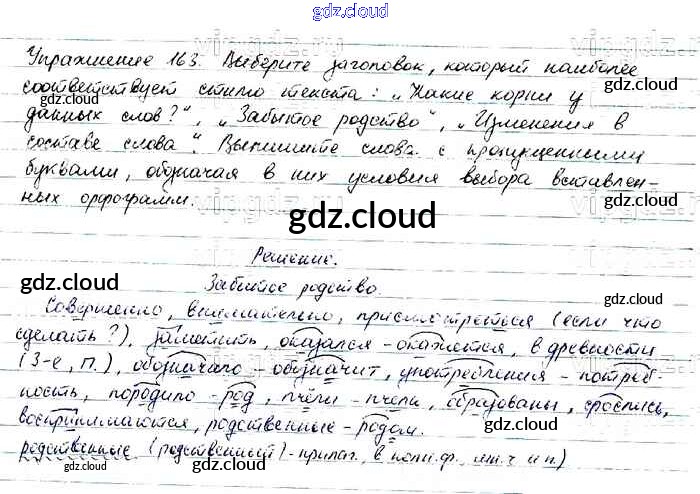 gdz.cloud
gdz.cloud
Упражнение 163. Выберите заголовок, который наиболее
соответствует стилю текста: „Какие корни у
gdz.cloud
данных слов?“, „Забытое родство“, „Изменения в
составе слова“. Выпишите слова с пропущенными
буквами, обозначая в них условия выбора вставлен-
ных орфограмм.
gdz.cloud
Решение.
gdz.cloud
gdz.cloud
Забытое родство.
Совершенно, внимательно, присмотреться (если что
сделать?), заметить, оказался - окажется, в древности
gdz.cloud
(3-е, П.), обозначало - обозначит, употребления - потреб-
ность, породило - род, пчёлы - пчела, образованы, срослись,
gdz.cloud
воспринимаются, родственные - родом.
родственные (родственный) - прилаг., в полн. ф., мн. ч. и п.)
gdz.cloud
gdz.cloud